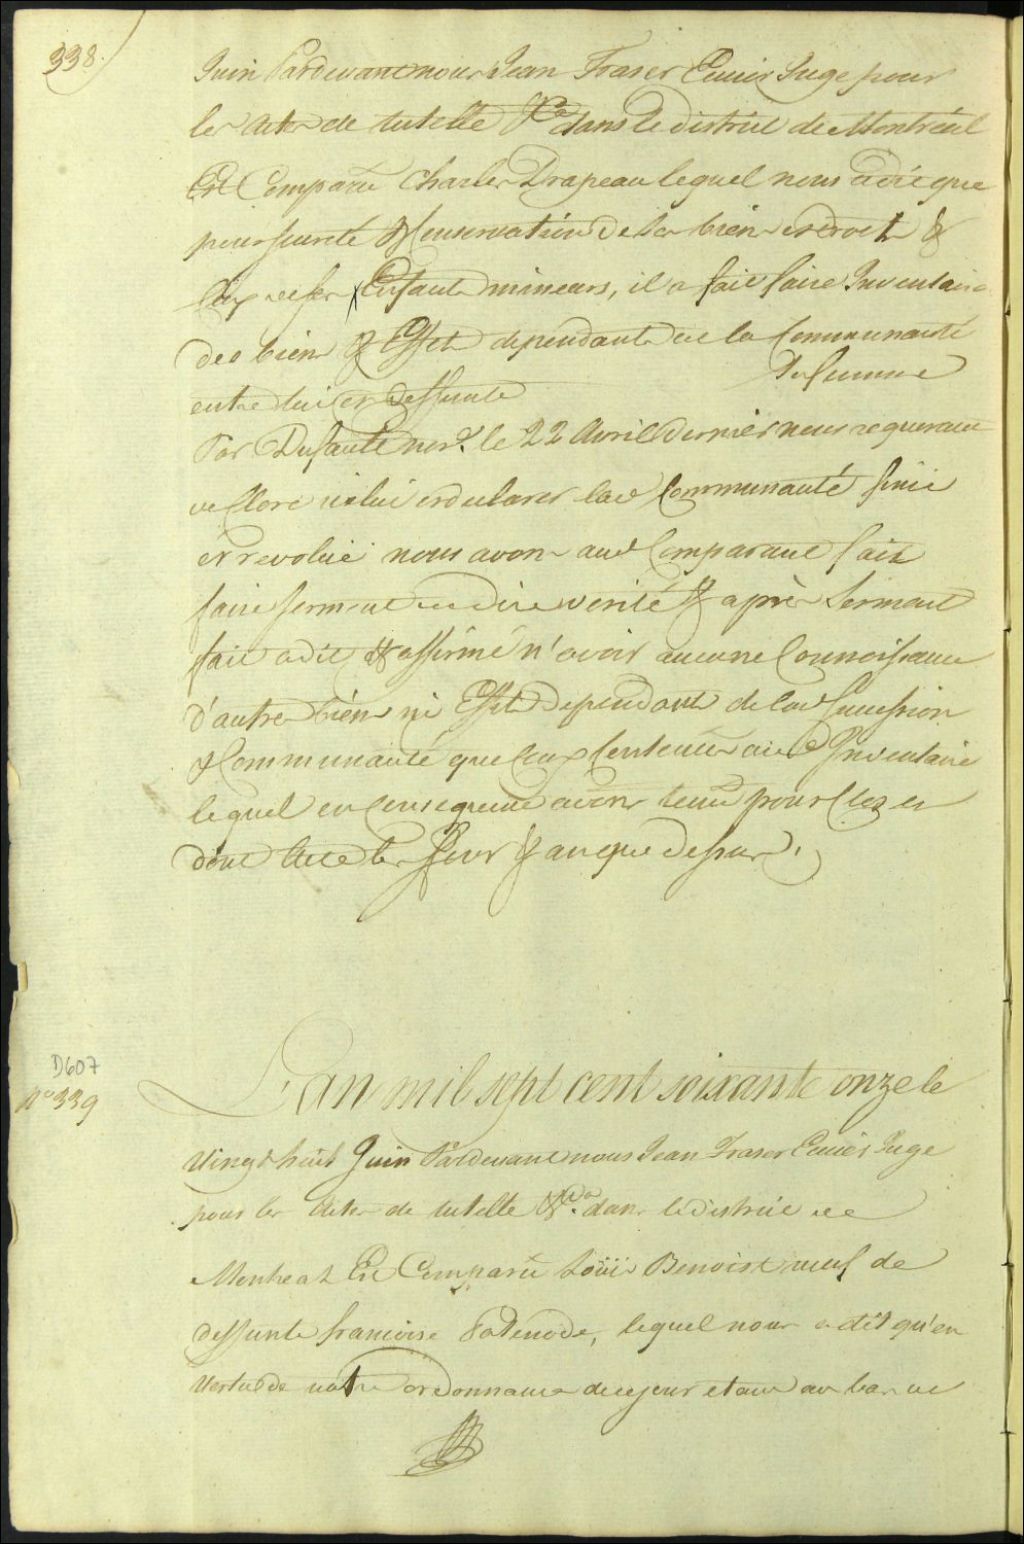 338.
Juin Pardevant nous Jean Fraser Ecuier Juge pour
les actes de tutelle &c.a dans le district de Montréal
Est Comparu Charles Drapeau lequel nous a dit que
pour sureté & Conservation de ses biens et droits &
Ceux de ses Enfants mineurs, il a fait faire Inventaire
des biens & Effets dependants de la Communauté
entre lui et deffunte sa femme
Par Dufault nore. le 22 Avril dernier nous requerant
ce Clore icelui et declarer lad Communauté finie
et revolue nous avons aud Comparant fait
faire serment de dire verité & après Serment
fait a dit & affirmé n'avoir aucune Connoissance
d'autres biens ni Effets dependants de lad Succession
& Communauté que Ceux Contenus aud Inventaire
lequel en Consequence avons tenu pour Clos et
dont Acte les Jour & an que dessus.
D607
No 339
L'an mil sept cent soixante onze le
vingt huit Juin Pardevant nous Jean Fraser Ecuier Juge
pour les actes de tutelle &c.a dans le district de
Montreal Est Comparu Loüis Benoist veuf de
deffunte francoise Patenode, lequel nous a dit qu'en
vertu de notre ordonnance de ce jour etant au bas de